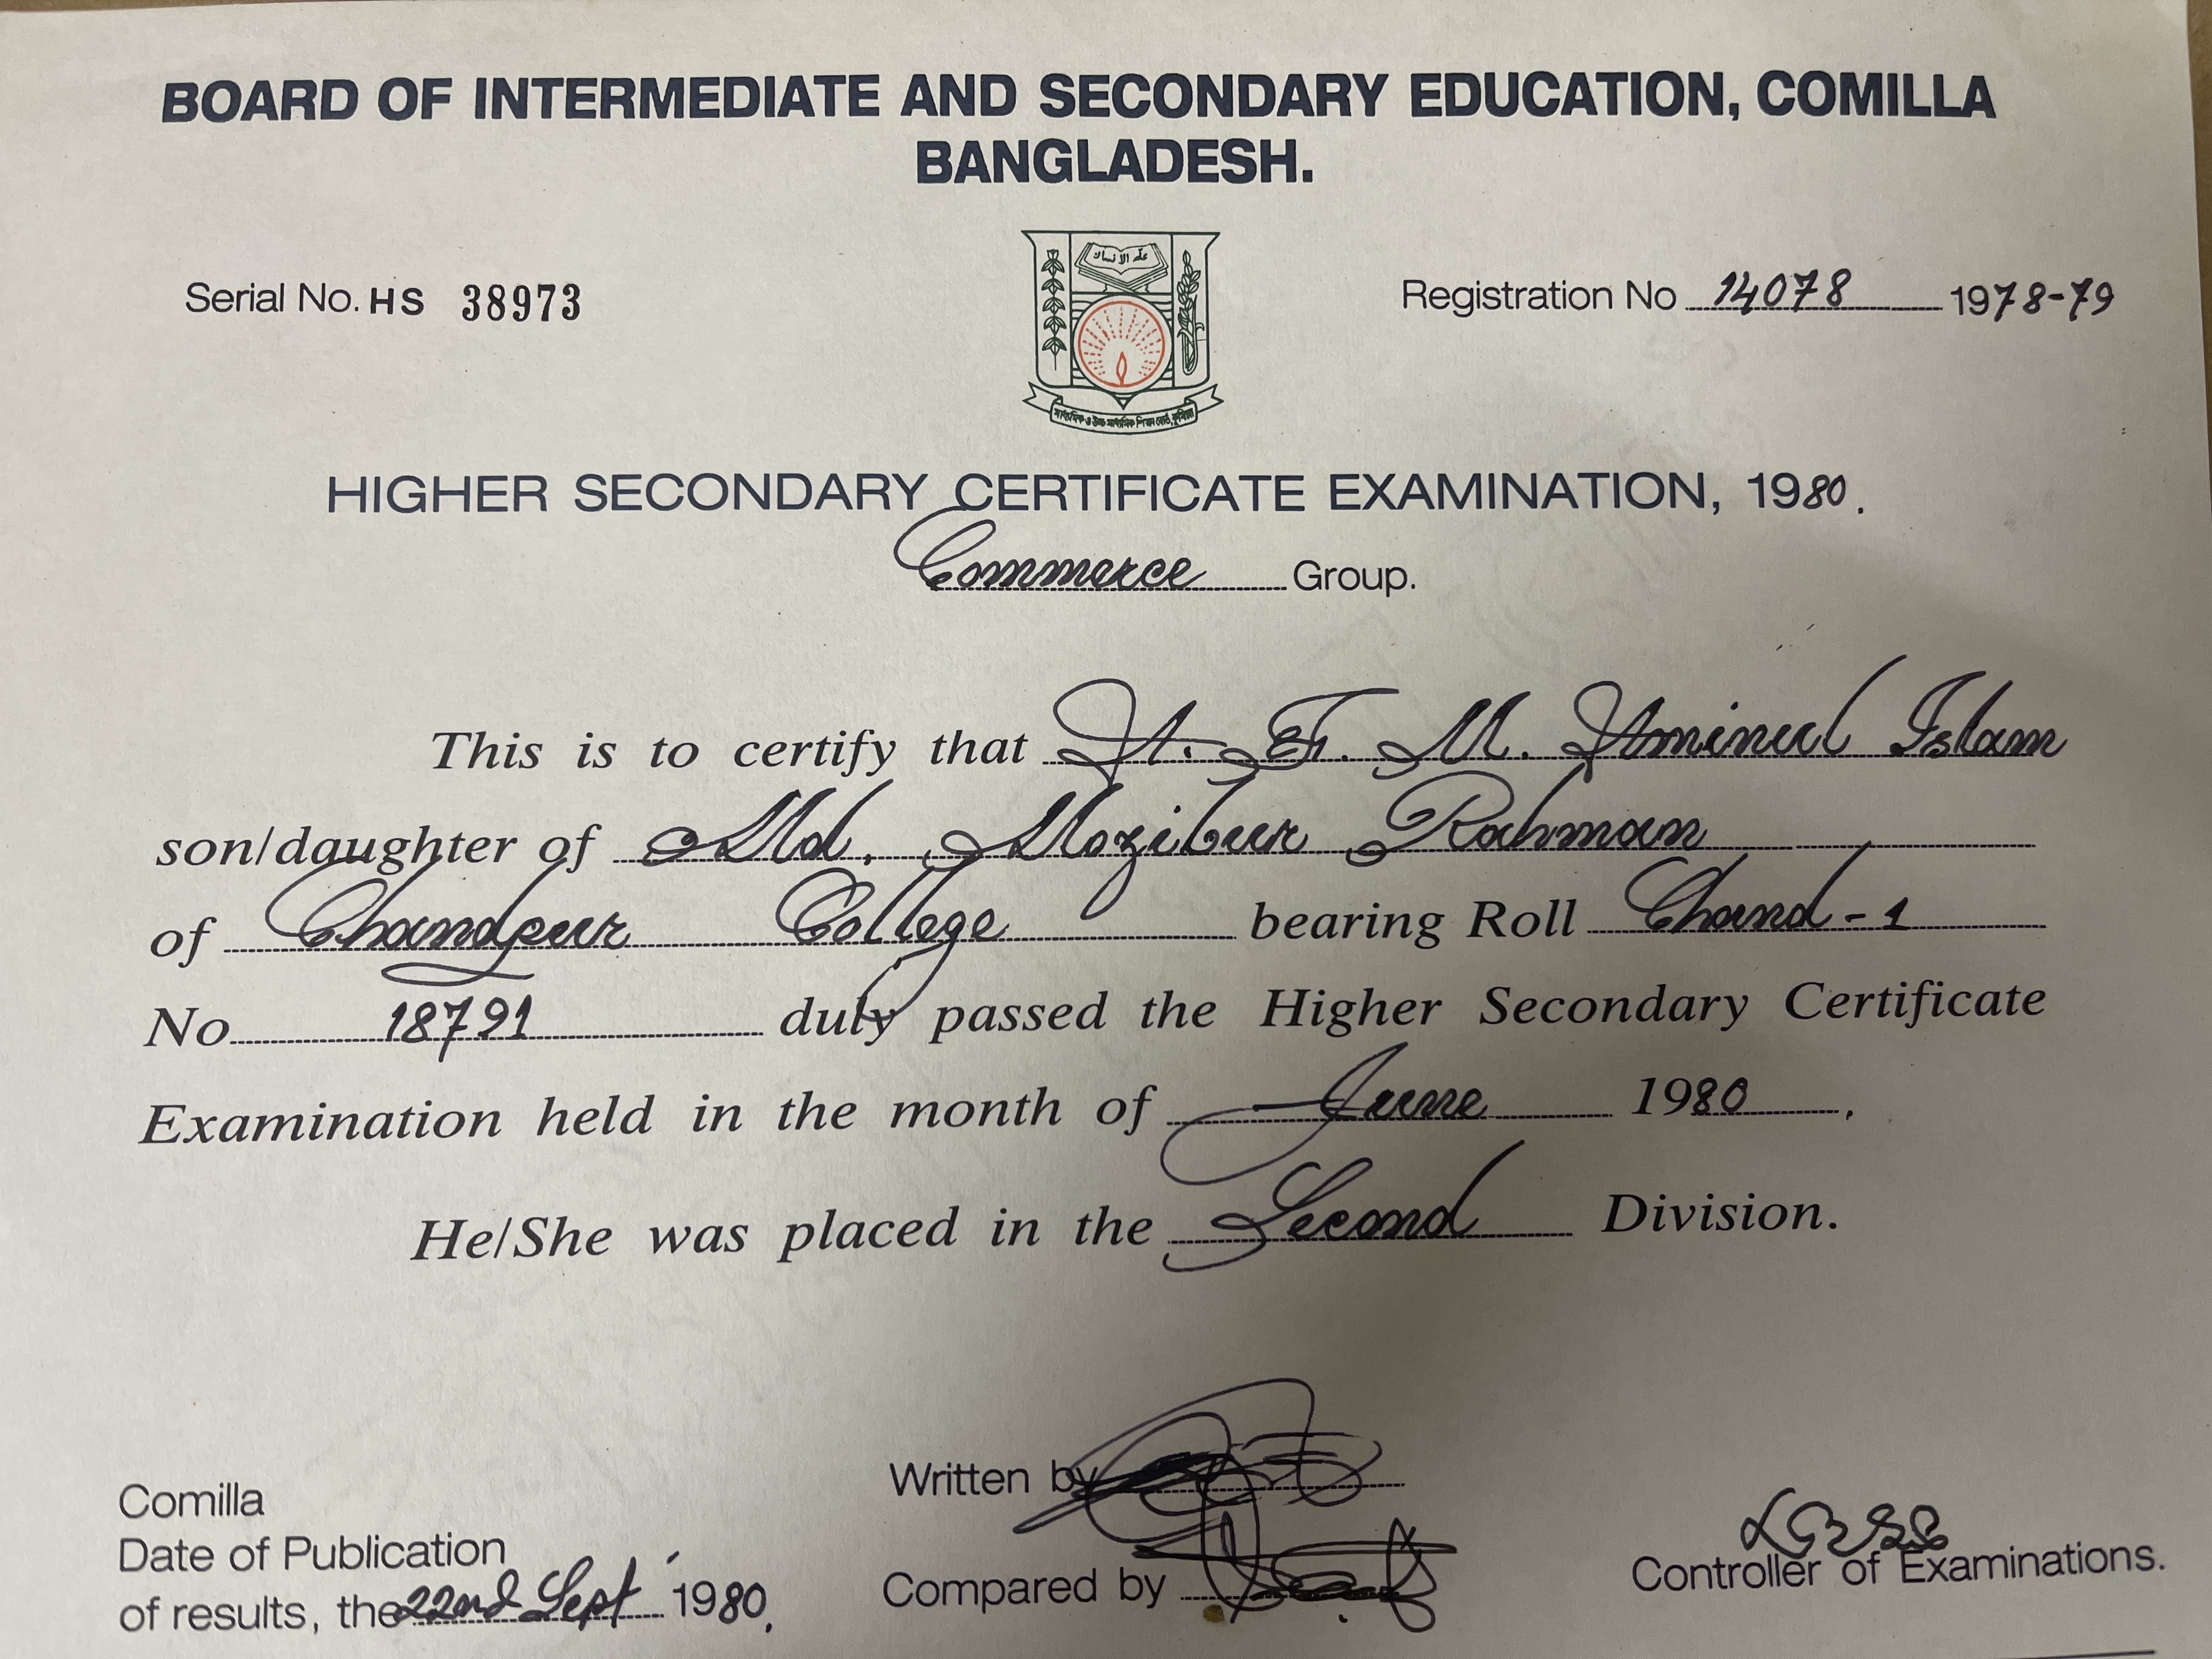 BOARD OF INTERMEDIATE AND SECONDARY EDUCATION, COMILLA
BANGLADESH.
Serial No. HS 38973
Registration No 14078 1978-79
HIGHER SECONDARY CERTIFICATE EXAMINATION, 1980.
Commerce Group.
This is to certify that A. T. M. Aminul Islam
son/daughter of Md. Mozibur Rahman
of Chandpur College bearing Roll Chand-1
No 18791 duly passed the Higher Secondary Certificate
Examination held in the month of June 1980.
He/She was placed in the Second Division.
Comilla
Date of Publication
of results, the 22nd Sept' 1980.
Written by
Compared by
Controller of Examinations.